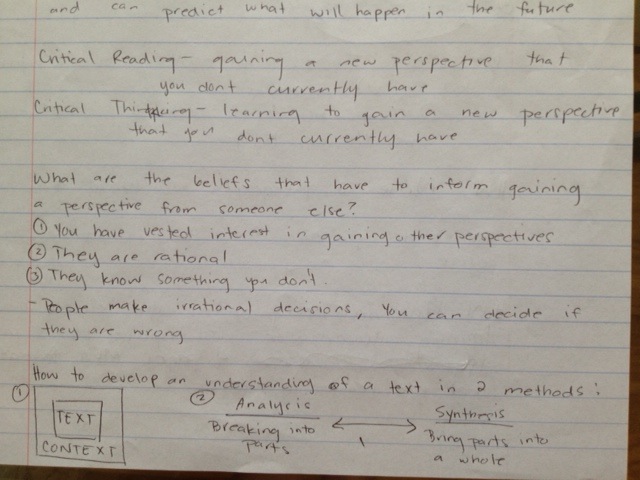 and can predict what will happen in the future
Critical Reading - gaining a new perspective that
you dont currently have
Critical Thinking - learning to gain a new perspective
that you dont currently have
What are the beliefs that have to inform gaining
a perspective from someone else?
① You have vested interest in gaining other perspectives
② They are rational
③ They know something you don't.
- People make irrational decisions, You can decide if
they are wrong
How to develop an understanding of a text in 2 methods:
① TEXT
CONTEXT
② Analysis
Breaking into
parts
Synthesis
Bring parts into
a whole